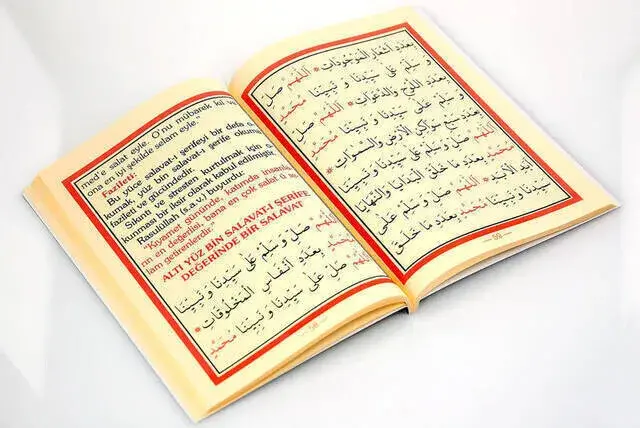 med'e salat eyle. O'nu mübarek kıl ve
ona en iyi şekilde selam eyle."
Fazileti:
Bu yüce salavat-ı şerifeyi bir defa o
kumak, yüz bin salavat-ı şerife okuma
fazilet ve gücündedir.
Sıkıntı ve stresten kurtulmak için o
kunması bir iksir olarak kabul edilmiştir.
Rasulüllah (s.a.v.) buyurdu:
"Kıyamet gününde, katımda insanla
rın en değerlisi, bana en çok salat ü se
lam getirenlerdir."
ALTI YÜZ BİN SALAVAT-I ŞERİFE
DEĞERİNDE BİR SALAVAT
صَلِّ وَسَلِّمْ عَلَى سَيِّدِنَا وَنَبِيِّنَا
بِعَدَدِ أَنْفَاسِ الْمَخْلُوقَاتِ *
صَلِّ عَلَى سَيِّدِنَا وَنَبِيِّنَا مُحَمَّدٍ
— 58 —
بِعَدَدِ أَشْعَارِ الْمَوْجُودَاتِ * اَللّٰهُمَّ صَلِّ
وَسَلِّمْ عَلَى سَيِّدِنَا وَنَبِيِّنَا مُحَمَّدٍ
بِعَدَدِ اللَّوْحِ وَالدَّعَوَاتِ * اَللّٰهُمَّ صَلِّ
وَسَلِّمْ عَلَى سَيِّدِنَا وَنَبِيِّنَا مُحَمَّدٍ
بِعَدَدِ سَوَاكِنِ الْأَرْضِ وَالسَّمٰوَاتِ *
اَللّٰهُمَّ صَلِّ وَسَلِّمْ عَلَى سَيِّدِنَا وَنَبِيِّنَا
مُحَمَّدٍ بِعَدَدِ مَا خَلَقَ الْبَدَايَا وَالنِّهَايَا
أَبَدَ الْأَبَدِيَّةِ * اَللّٰهُمَّ صَلِّ وَسَلِّمْ عَلَى
سَيِّدِنَا وَنَبِيِّنَا مُحَمَّدٍ بِعَدَدِ مَا خَلَقَ
— 59 —